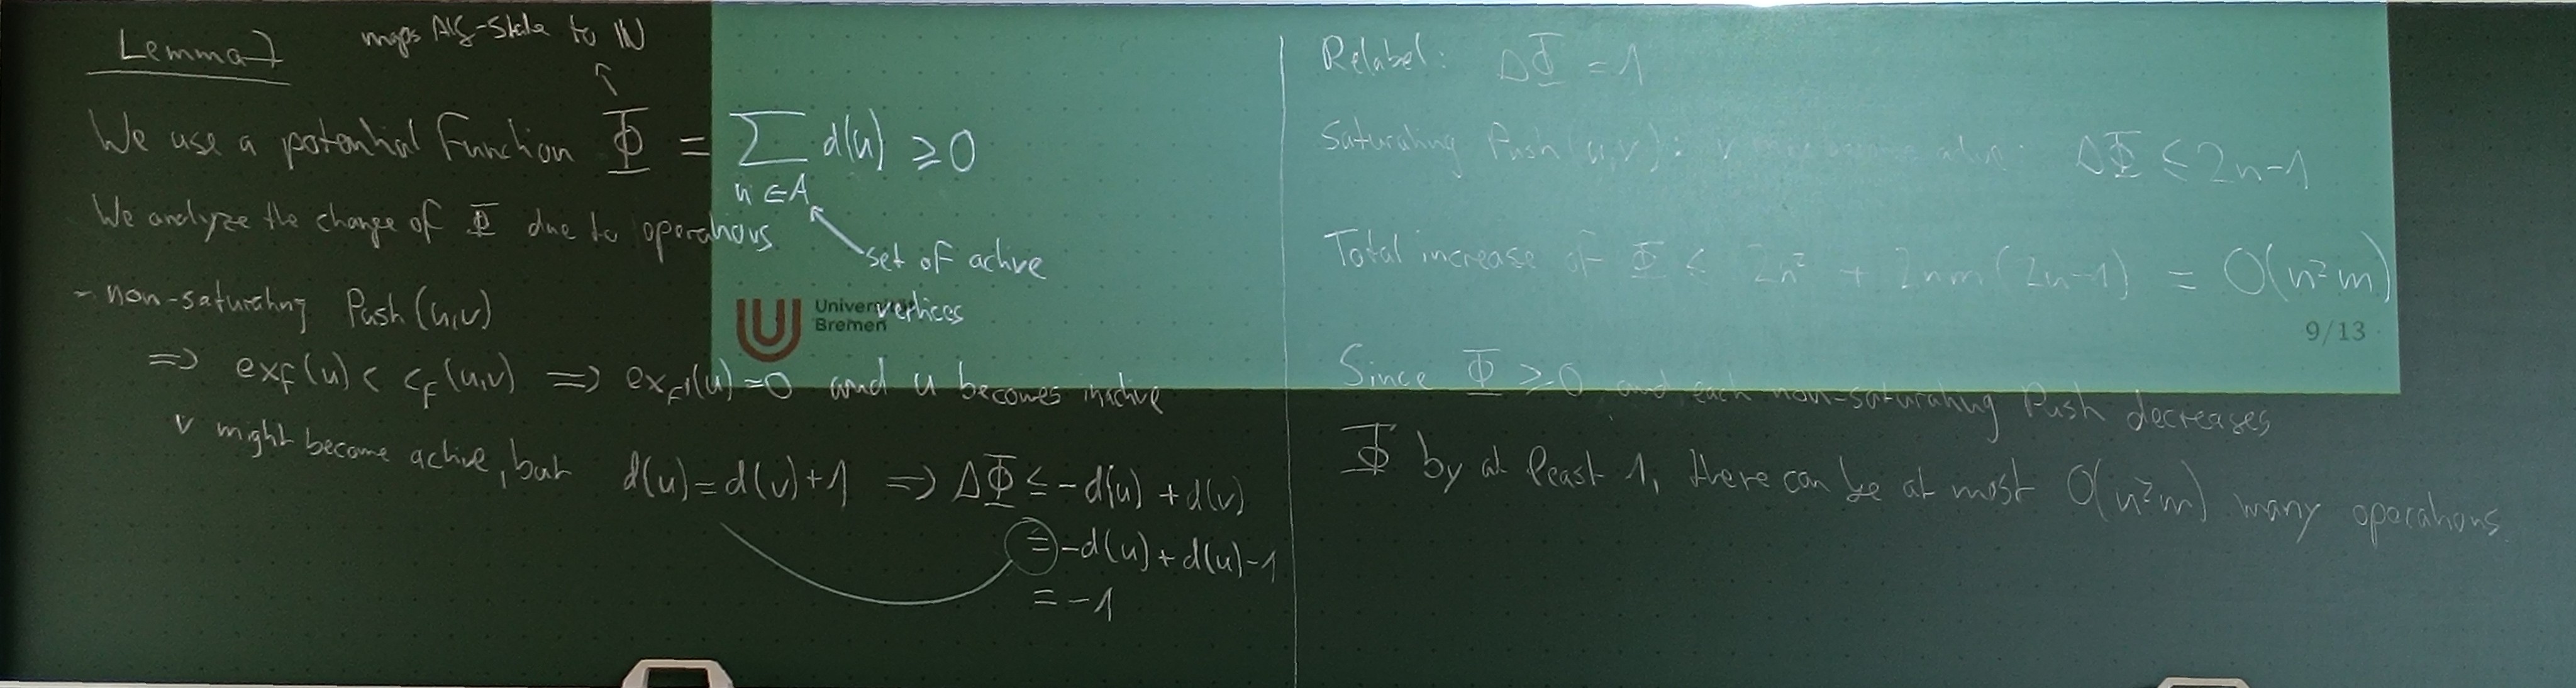 Lemma 7
maps Alg-State to ℕ
We use a potential function Φ = ∑ d(u) ≥ 0
u ∈ A
set of active
vertices
We analyze the change of Φ due to operations
- non-saturating Push(u,v)
=> ex_f(u) < c_f(u,v) => ex_f'(u) = 0 and u becomes inactive
v might become active, but d(u) = d(v)+1 => ΔΦ ≤ -d(u) + d(v)
= -d(u) + d(u) - 1
= -1
Universität
Bremen
Relabel: ΔΦ = 1
Saturating Push(u,v): v may become active. ΔΦ ≤ 2n-1
Total increase of Φ ≤ 2n² + 2nm(2n-1) = O(n²m)
9/13
Since Φ ≥ 0 and each non-saturating Push decreases
Φ by at least 1, there can be at most O(n²m) many operations